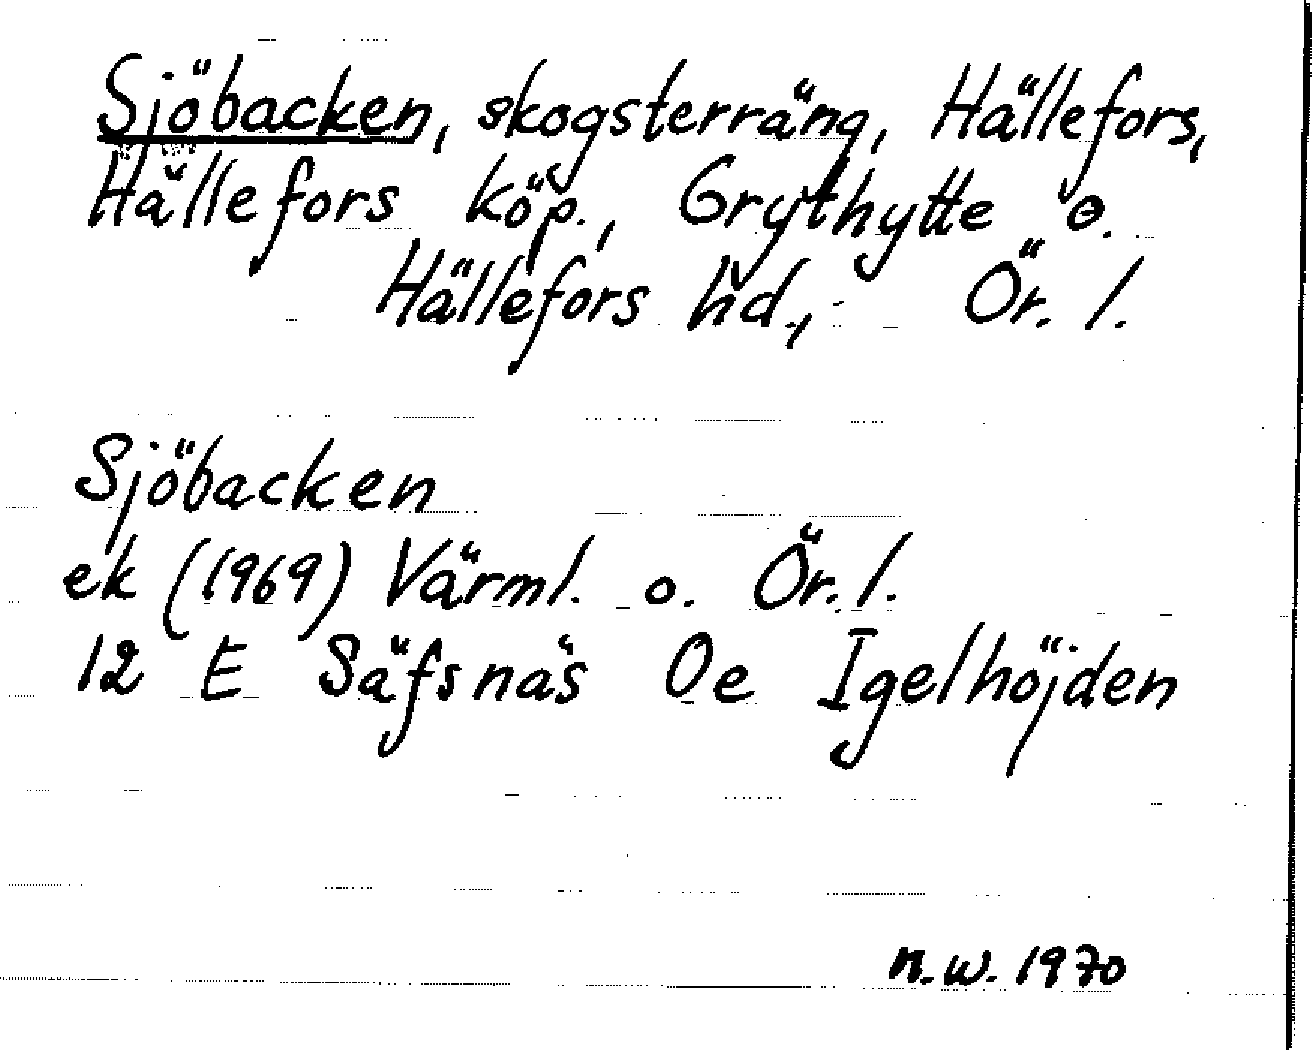 Sjöbacken, skogsterräng, Hällefors,
Hällefors köp., Grythytte o.
Hällefors hd., Ör. l.
Sjöbacken
ek (1969) Värml. o. Ör. l.
12 E Säfsnäs 0e Igelhöjden
M.W. 1970